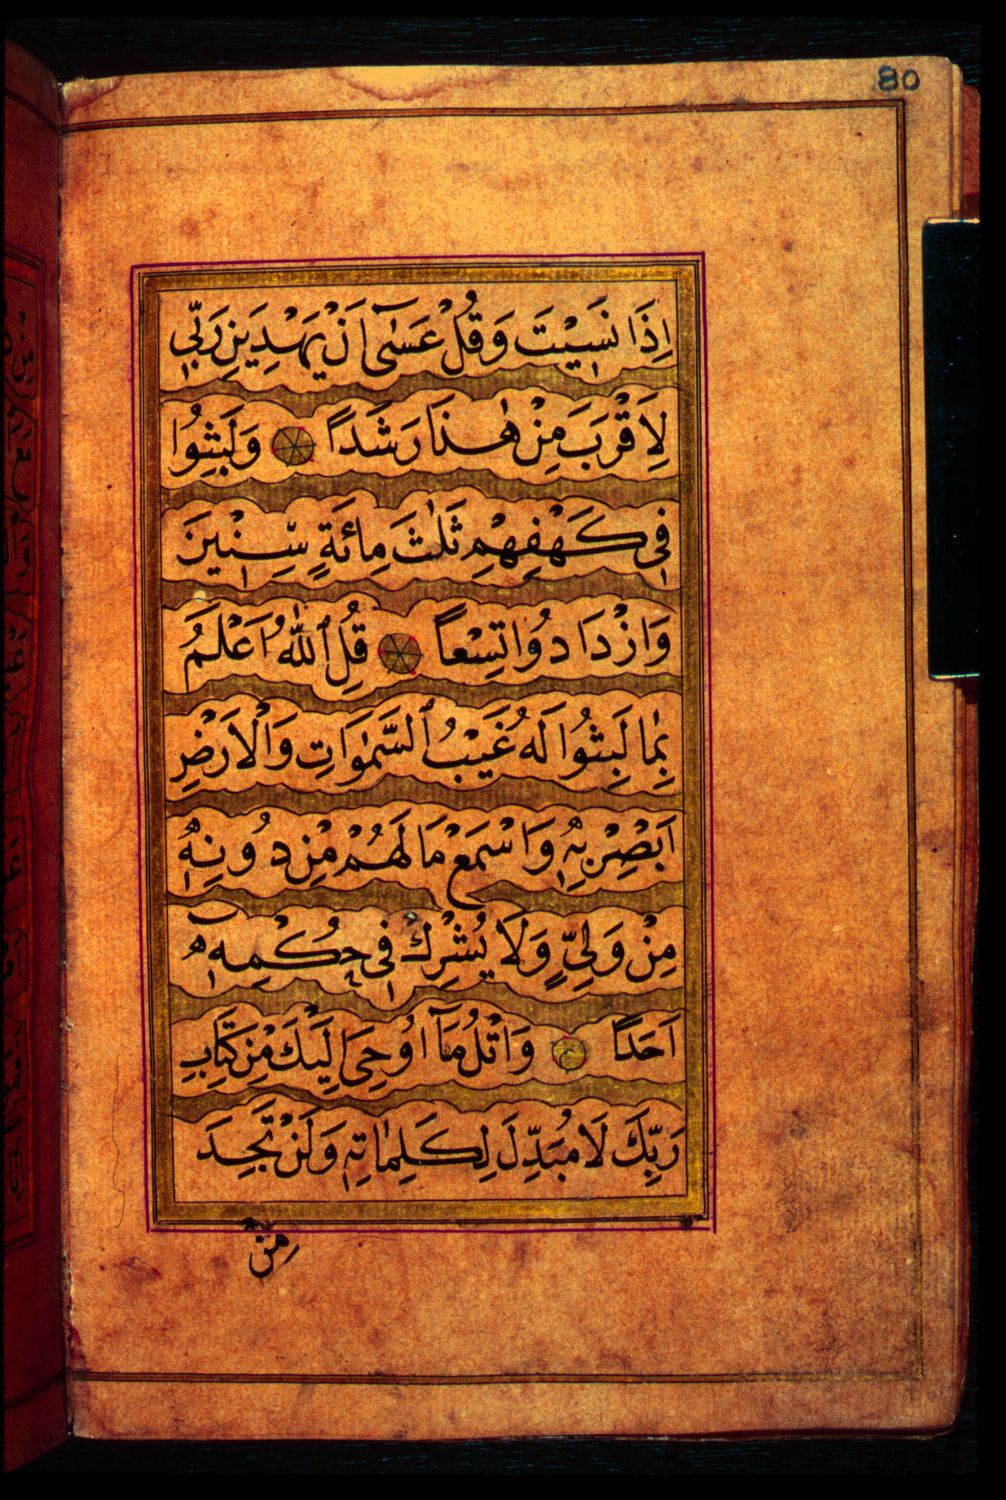 80
اِذَا نَسَيْتَ وَقُلْ عَسٰٓى اَنْ يَهْدِيَنِ رَبّٖى
لِاَقْرَبَ مِنْ هٰذَا رَشَدًا وَلَبِثُوا
فٖى كَهْفِهِمْ ثَلٰثَ مِائَةٍ سِنٖينَ
وَازْدَادُوا تِسْعًا قُلِ اللّٰهُ اَعْلَمُ
بِمٰا لَبِثُوا لَهُ غَيْبُ السَّمٰوَاتِ وَالْاَرْضِ
اَبْصِرْ بِهٖ وَاَسْمِعْ مَا لَهُمْ مِنْ دُونِهٖ
مِنْ وَلِىٍّ وَلَا يُشْرِكُ فٖى حُكْمِهٖٓ
اَحَدًا وَاتْلُ مَآ اُوحِىَ اِلَيْكَ مِنْ كِتَابِ
رَبِّكَ لَا مُبَدِّلَ لِكَلِمٰاتِهٖ وَلَنْ تَجِدَ
مِنْ